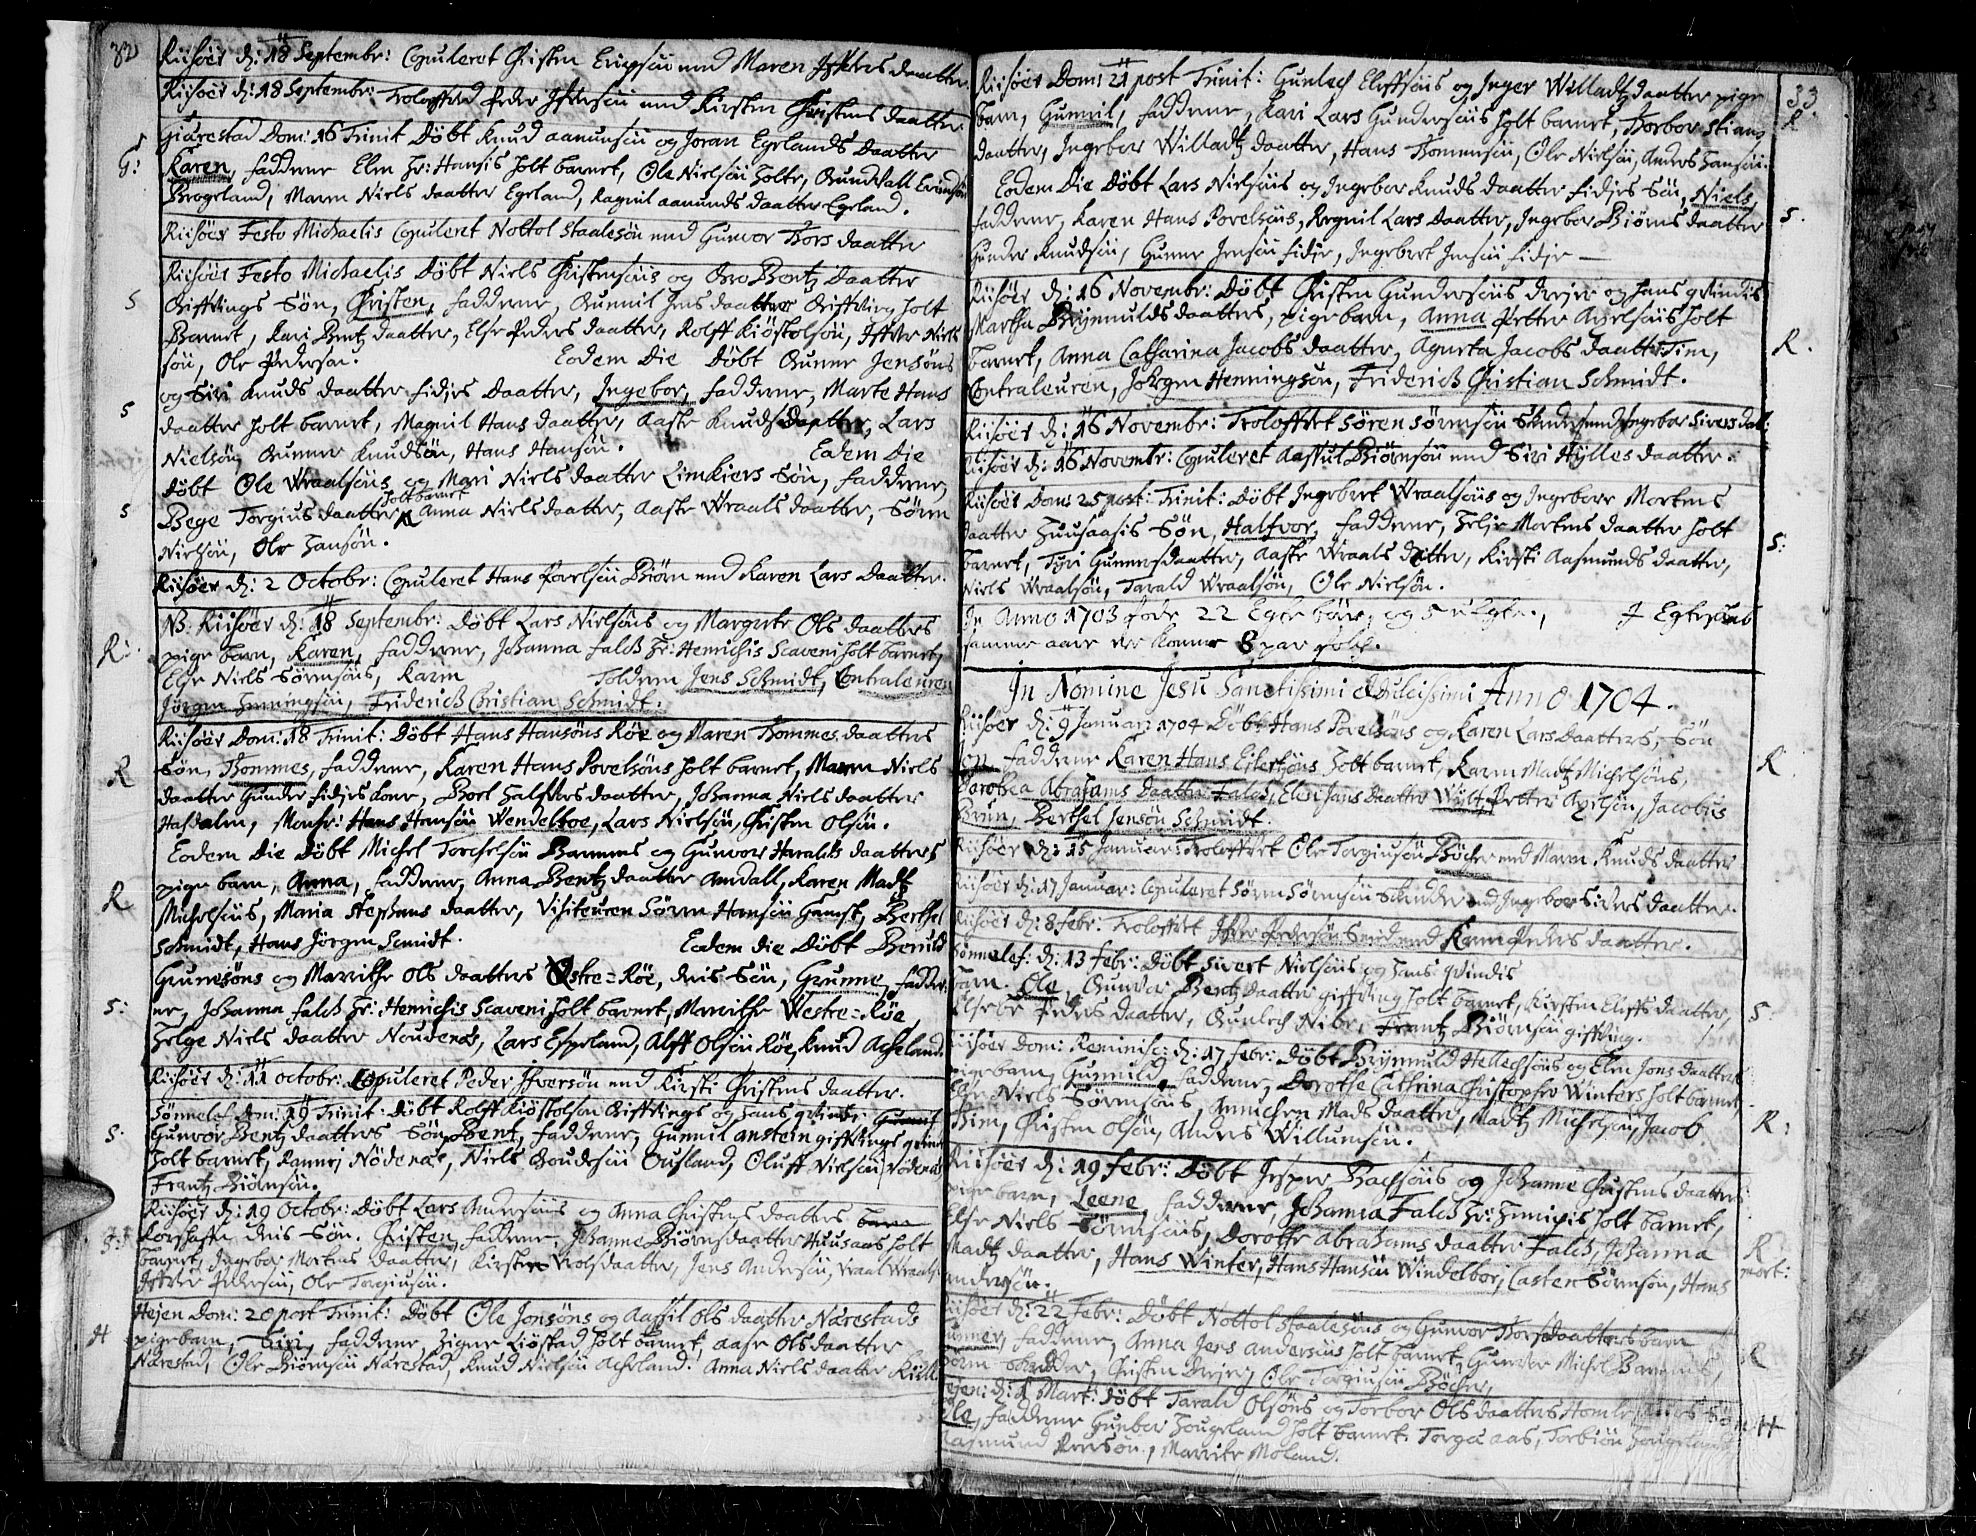 32
Riisöer d: 18 Septembr: Copuleret Christen Ericsön med Maren Ifvers daatter
Riisöer d: 18 Septembr: Troloffvet Peder Ifversön med Kirsten Christens daatter
Giærestad Dom: 16 Trinit Döbt Knud aanunsön og Joran Egelands Daatter
G: Karen, faddere Elen Hr: Hansis holt barnet, Ole Nielsön Holte, Gundvall Evindsön
Brogeland, Maren Niels daatter Egeland, Ragnil aanunds daatter Egeland.
Riisöer Festo Michaelis Copuleret Nottol Staalesön med Gunvor Thors daatter
Riisöer Festo Michaelis Döbt Niels Christensöns og Gro Bentz Daatter
S Gifftvings Sön, Christen, faddere, Gunnil Jens daatter Gifftving holt
Barnet, Kari Bentz daatter, Else Peders daatter, Rolff Kiöstolsön, Iffver Niels
sön, Ole Pedersön. Eodem Die Döbt Gunner Jensöns
og Siri Knuds daatter fidjes Daatter, Ingebor, faddere, Marte Hans
S daatter holt barnet, Magnil Hans daatter, Aaste Knuds daatter, Lars
Nielsön, Gunner Knudsön, Hans Hansön. Eodem Die
Döbt Ole Wraalsöns og Mari Niels daatter Limkiers Sön, faddere,
S Bege Torgius daatter holt barnet Anna Niels daatter, Aaste Wraals daatter, Sören
Nielsön, Ole Hansön.
Riisöer d: 2 Octobr: Copuleret Hans Povelsön Biörn med Karen Lars daatter.
NB. Riisöer d: 18 Septembr: Döbt Lars Nielsöns og Margrete Ols daatters
R: pige barn, Karen, faddere, Johanna Falck Hr: Henrichis Scaveni holt barnet,
Else Niels Sörensöns, Karen Tolderen Jens Schmidt, Contraleuren
Jörgen Henningsön, Friderich Christian Schmidt.
Riisöer Dom: 18 Trinit: Döbt Hans Hansöns Röe og Maren Thommes daatters
R Sön, Thommes, faddere, Karen Hans Povelsöns holt barnet, Maren Niels
daatter Gunder fidjes kone, Boel Halfvers daatter, Johanna Niels daatter
Hasdalen, Monsr: Hans Hansön Wendelboe, Lars Nielsön, Christen Olsön.
Eodem Die Döbt Michel Torchelsön Bammes og Gunvor Haralds daatters
R pige barn, Anna, faddere, Anna Bentz daatter Amdall, Karen Madtz
Michelsöns, Maria Stephans daatter, Visiteuren Sören Hansön Gamst, Berthel
Schmidt, Hans Jörgen Scmidt. Eodem die Döbt Beruld
Gunesöns og Marrithe Ols daatters Östre=Röe, deris Sön, Grunne, fadde-
S: re, Johanna Falck Hr: Henrichis Scaveni holt barnet, Marrithe Westre=Röe
Helge Niels daatter Noudenes, Lars Espeland, Alff Olsön Röe, Knud Acheland.
Riisöer d: 11 octobr: Copuleret Peder Ifversön med Kirsti Christens daatter.
Sönnelef Dom: 19 Trinit: Döbt Rolff Kiöstolsön Gifftvings og hans qvinde
S: Gunvor Bentz daatters Sön, Bent, faddere, Gunnil anstein gifftvings qvinde
holt barnet, Ranni Nödenæs, Niels Goudesön Ousland, Oluff Nielsön Nödenæs
Frantz Biörnsön.
Riisöer d: 19 Octobr: Döbt Lars Andersöns og Anna Christens daatters
deris Sön. Christen, faddere, Johanne Biörnsdaatter Huusaas holt
barnet, Ingebor Mortens daatter, Kirsten Wolsdaatter, Jens Andersön, Wraal Wraals.
Ifver Pedersön, Ole Torgiusön.
Hejen Dom: 20 post Trinit: Döbt Ole Jonsöns og Aassil Ols daatter Nærestads
H pigebarn, Siri, faddere, Signe Liöstad holt barnet, aase Ols daatter
Nærestad, Ole Biörnsön Nærestad, Knud Nielsön Acheland. Anna Niels daatter
33
Riisöer Dom: 21 post Trinit: Gunlech Eliffsöns og Inger Willadtz daatter pige
R barn, Gunnil, faddere, Kari Lars Gundersöns holt barnet, Thorbor Stians
daatter, Ingebor Willadtz daatter, Hans Thommesön, Ole Nielsön, Anders Hansön.
Eodem Die Döbt Lars Nielsöns og Ingebor Knuds daatter fidjes Sön, Niels,
S. faddere, Karen Hans Povelsöns, Regnil Lars Daatter, Ingebor Biörns daatter
Gunder Knudsön, Gunner Jensön fidje, Ingebret Jensön fidje —
Riisöer d: 16 Novembr: Döbt Christen Gundersöns dreyer og hans qvindis
Marthe Brynnulds daatters, pigebarn, Anna Petter Axelsöns holt
R. barnet, Anna Catharina Jacobs daatter, Agneta Jacobs daatter Fim,
Contraleuren, Jörgen Henningsön, Friderich Christian Schmidt.
Riisöer d: 16 Novembr: Troloffvet Sören Sörensön med Ingebor Sivers dat:
Riisöer d: 16 Novembr: Copuleret Aassul Biörnsön med Siri Hylles daatter.
Riisöer Dom: 25 post: Trinit: Döbt Ingebret Wraalsöns og Ingebor Mortens
daatter Huusaasis Sön, Halfvor, faddere, Helje Mortens daatter holt
S: barnet, Tyri Gunnersdaatter, Aaste Wraals datter, Kirsti Aasmunds daatter,
Niels Wraalsön, Tarald Wraalsön, Ole Nielsön.
In Anno 1703 föde 22 Egte börn, og 5 uEgte,
samme aar ere komne 8 par folk.
In Nomine Jesu Sanctissimi et Dulcissimi Anno 1704.
Riisöer d: 9 Januar: 1704 Döbt Hans Povelsöns og Karen Lars Daatters, Sön
R Jon, faddere Karen Hans Eilertsöns holt barnet, Karen Madtz Michelsöns,
Dorothea Abrahams daatter Falch, Elen Jans Daatter Wylt, Petter Axelsön, Jacobus
Brun, Berthel Jensön Schmidt.
Riisöer d: 15 Januar: Troloffvet Ole Torgiusön Böcher med Maren Knuds daatter
Riisöer d: 17 Januar: Copuleret Sören Sörensön med Ingebor Sivers daatter.
Riisöer d: 8 febr: Troloffvet Ifver Pedersön med Karen Peders daatter.
Sönnelef: d: 13 febr: Döbt Sivert Nielsöns og hans qvindis
S: barn. Ole, Gunvor Bentz daatter gifftving holt barnet, Kirsten Eliffs daatter,
Elsebe Peders daatter, Gunlech Nibe, Frantz Biörnsön gifftving.
Riisöer Dom: Reminisc: d: 17 febr: Döbt Brynnuld Hellechsöns og Elen Jons daatters
pigebarn, Gunnild, faddere, Dorothe Cathrina Christopher Winters holt barnet,
R: Else Niels Sörensöns, Annichen Mads daatter, Madtz Michelsön, Jacob
Bim, Christen Olsön, Anders Willumsön.
Riisöer d: 19 febr: Döbt Jesper Bachsöns og Johanne Christens daatters
pige barn, Leene, faddere, Johanna Falch Hr: Henrichis holt barnet,
R mort: Else Niels Sörensöns, Dorothe Abrahams daatter Falch, Johanna
Madtz daatter, Hans Winter, Hans Hansön Windelboe, Casten Sörensön, Hans
Andersön.
Riisöer d: 22 Febr: Döbt Nottol Staalesöns og Gunvor Thorsdaatters barn
R Gunner, faddere, Anna Jens Andersöns holt barnet, Gunvor Michel Bammes,
Christen dreyer, Ole Torgiusön Böcher,
Hejen: d: 2 Mart: Döbt Tarald Olsöns og Torbor Ols daatters Sön
H Ole, faddere Gunbor Hougeland holt barnet Torgæ aas, Torbiön Hougeland,
Aasmund Peersön, Marrite Moland.